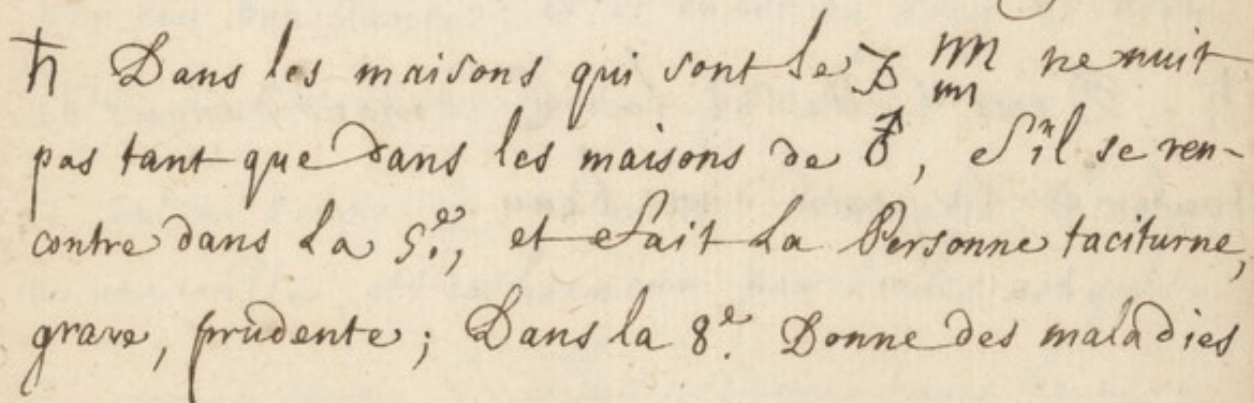 ♄ Dans les maisons qui sont le ♑ ♒ ne nuit
pas tant que dans les maisons de ♂, S'il se ren-
contre dans la 5.e, et fait la Personne taciturne,
grave, prudente; Dans la 8.e Donne des maladies